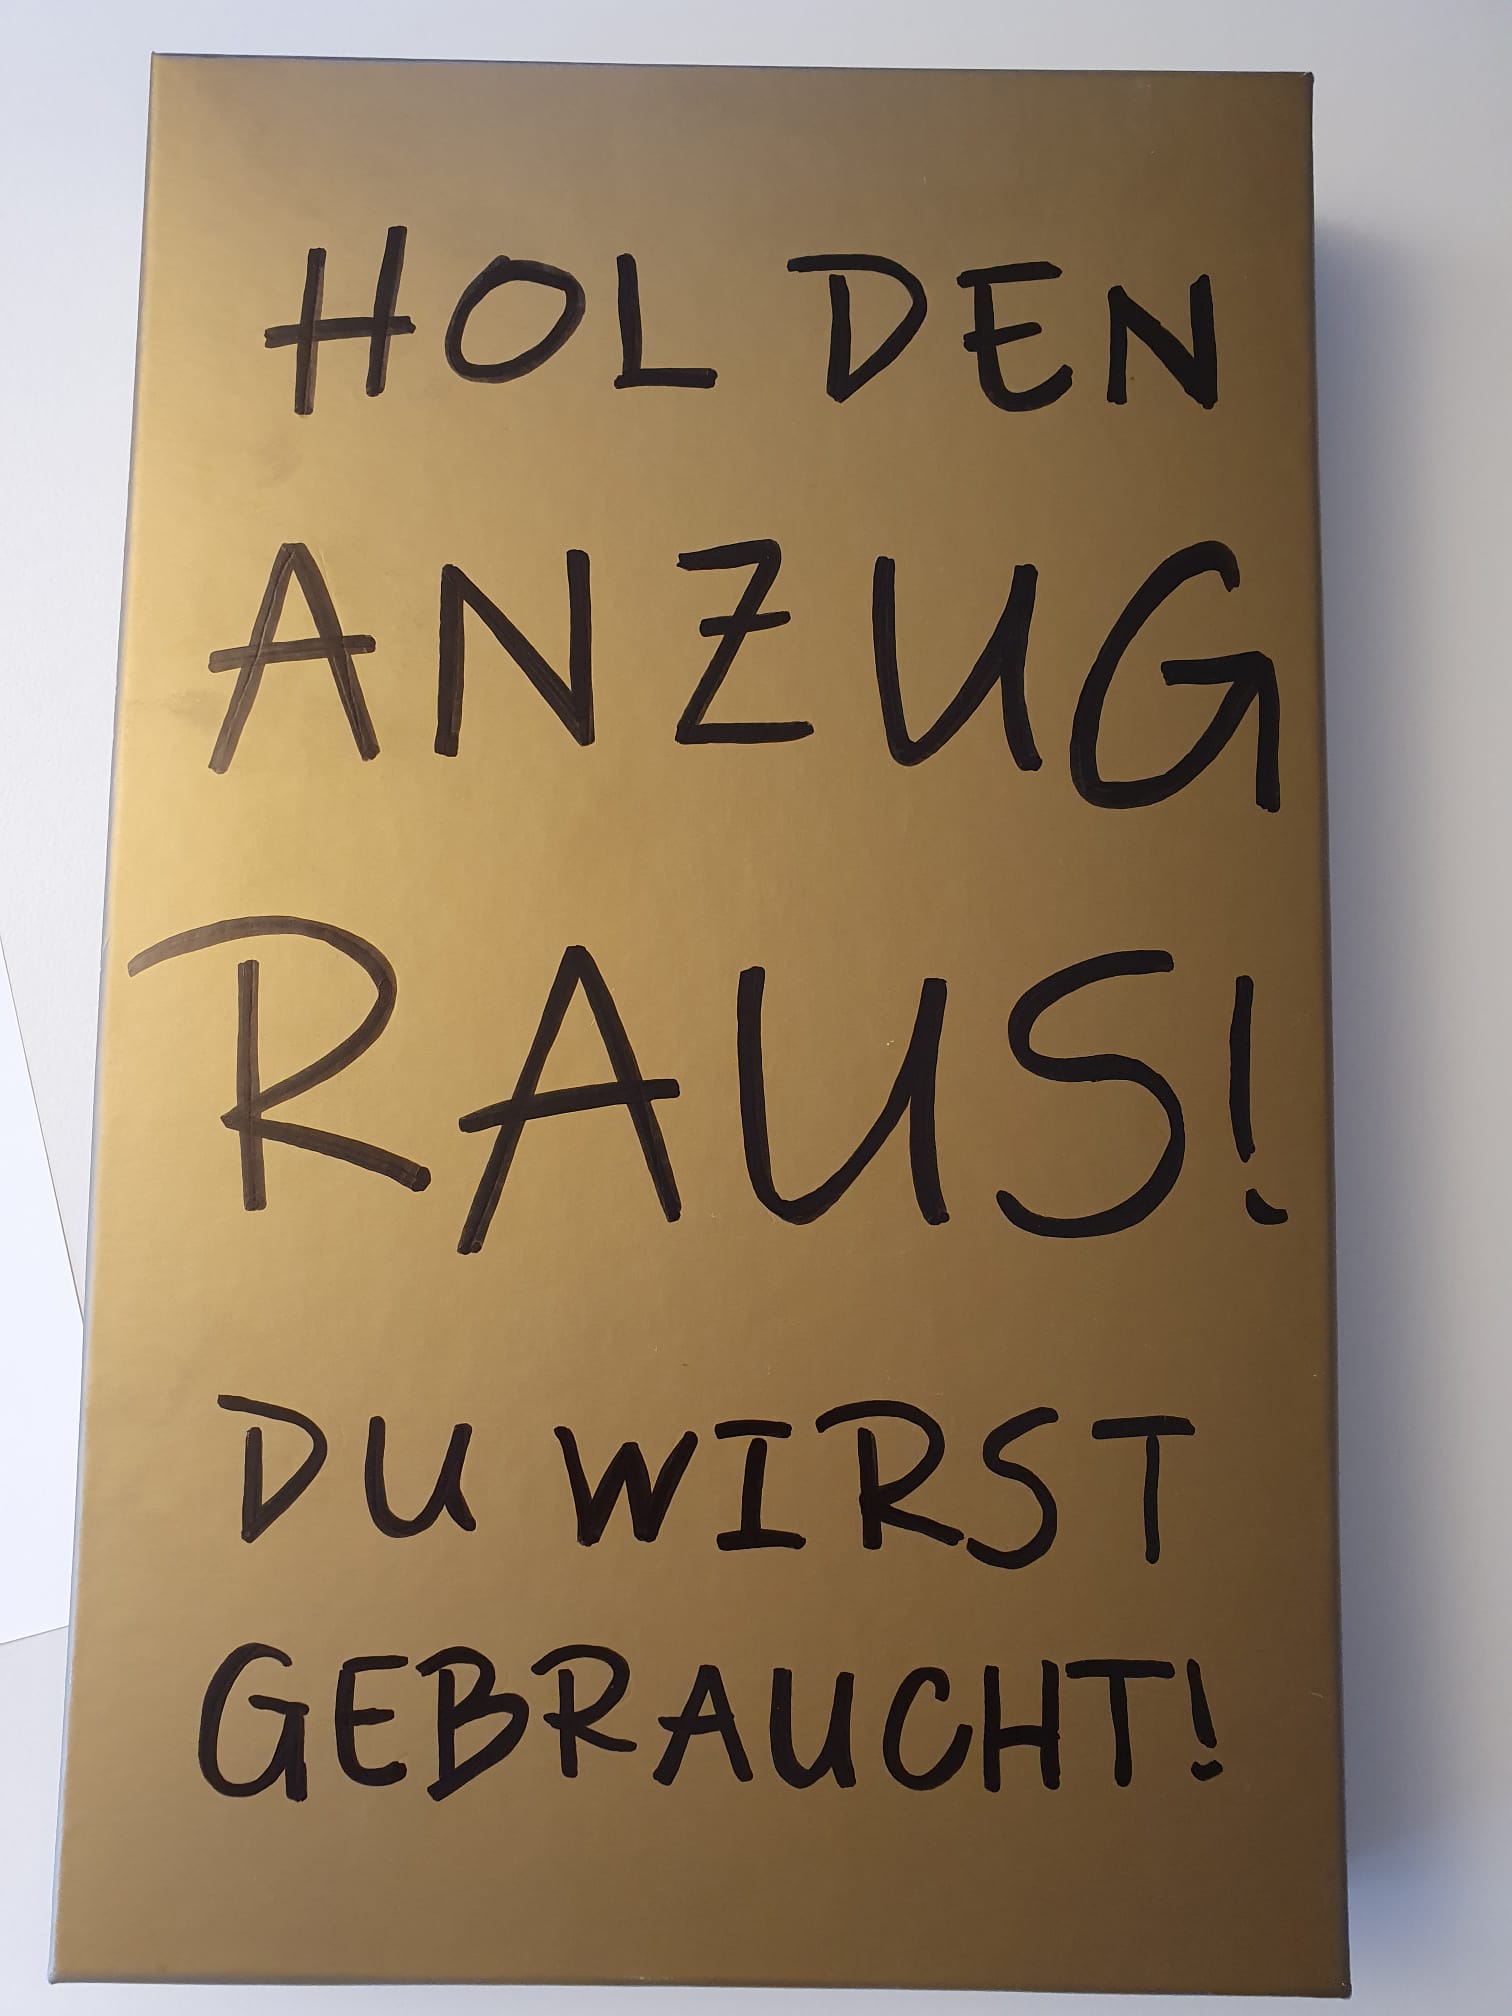 HOL DEN
ANZUG
RAUS!
DU WIRST
GEBRAUCHT!